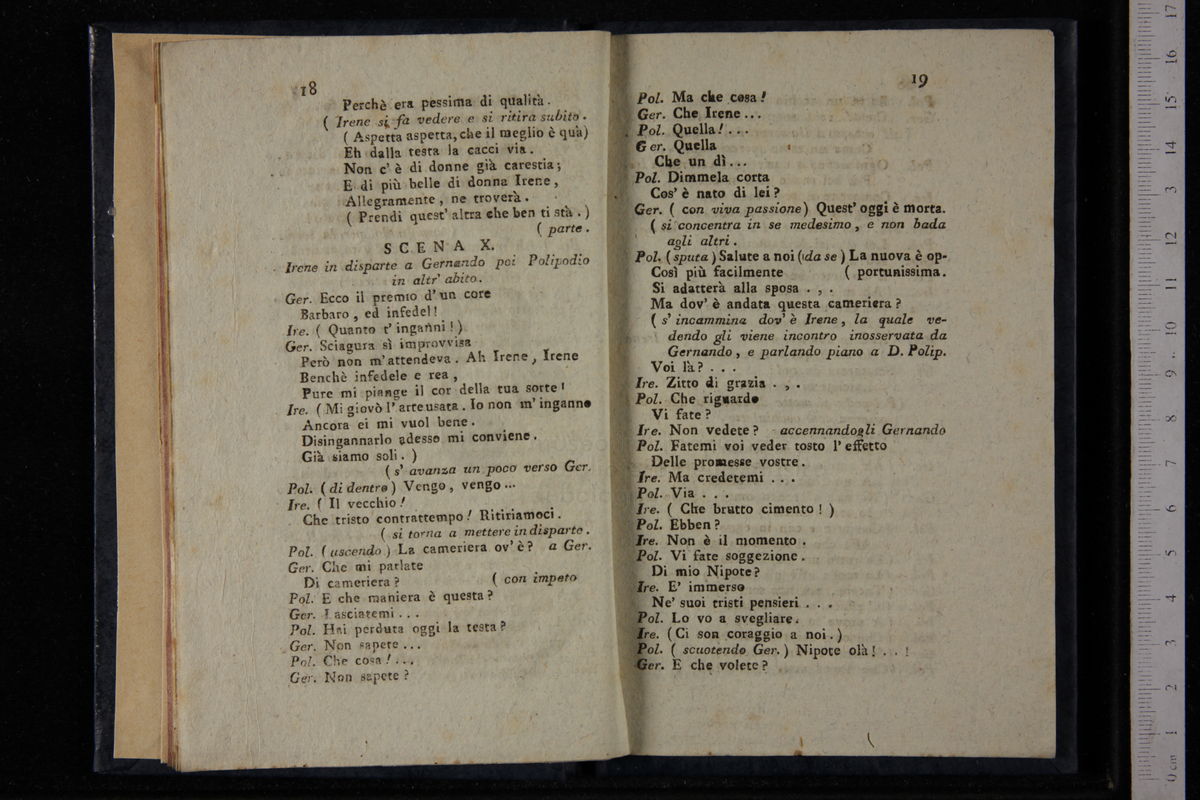 18
Perchè era pessima di qualità.
( Irene si fa vedere e si ritira subito.
( Aspetta aspetta, che il meglio è quà)
Eh dalla testa la cacci via.
Non c'è di donne già carestia;
E di più belle di donna Irene,
Allegramente, ne troverà.
( Prendi quest' altra che ben ti stà.)
( parte.
SCENA X.
Irene in disparte a Gernando poi Polipodio
in altr' abito.
Ger. Ecco il premio d'un core
Barbaro, ed infedel!
Ire. ( Quanto t'inganni!)
Ger. Sciagura sì improvvisa
Però non m'attendeva. Ah Irene, Irene
Benchè infedele e rea,
Pure mi piange il cor della tua sorte!
Ire. (Mi giovò l'arte usata. Io non m'inganno
Ancora ei mi vuol bene.
Disingannarlo adesso mi conviene.
Già siamo soli. )
( s' avanza un poco verso Ger.
Pol. ( di dentro) Vengo, vengo...
Ire. ( Il vecchio!
Che tristo contrattempo! Ritiriamoci.
( si torna a mettere in disparte.
Pol. ( uscendo) La cameriera ov'è? a Ger.
Ger. Che mi parlate
Di cameriera? ( con impeto
Pol. E che maniera è questa?
Ger. Lasciatemi...
Pol. Hai perduta oggi la testa?
Ger. Non sapete...
Pol. Che cosa!...
Ger. Non sapete?
19
Pol. Ma che cosa!
Ger. Che Irene...
Pol. Quella!...
Ger. Quella
Che un dì...
Pol. Dimmela corta
Cos'è nato di lei?
Ger. ( con viva passione) Quest'oggi è morta.
( si concentra in se medesimo, e non bada
agli altri.
Pol. (sputa) Salute a noi (da se) La nuova è op-
Così più facilmente ( portunissima.
Si adatterà alla sposa . , .
Ma dov'è andata questa cameriera?
( s' incammina dov' è Irene, la quale ve-
dendo gli viene incontro inosservata da
Gernando, e parlando piano a D. Polip.
Voi là? . . .
Ire. Zitto di grazia . , .
Pol. Che riguardo
Vi fate?
Ire. Non vedete? accennandogli Gernando
Pol. Fatemi voi veder tosto l'effetto
Delle promesse vostre.
Ire. Ma credetemi . . .
Pol. Via . . .
Ire. ( Che brutto cimento! )
Pol. Ebben?
Ire. Non è il momento.
Pol. Vi fate soggezione.
Di mio Nipote?
Ire. E' immerso
Ne' suoi tristi pensieri . . .
Pol. Lo vo a svegliare.
Ire. (Ci son coraggio a noi.)
Pol. ( scuotendo Ger.) Nipote olà! . . !
Ger. E che volete?